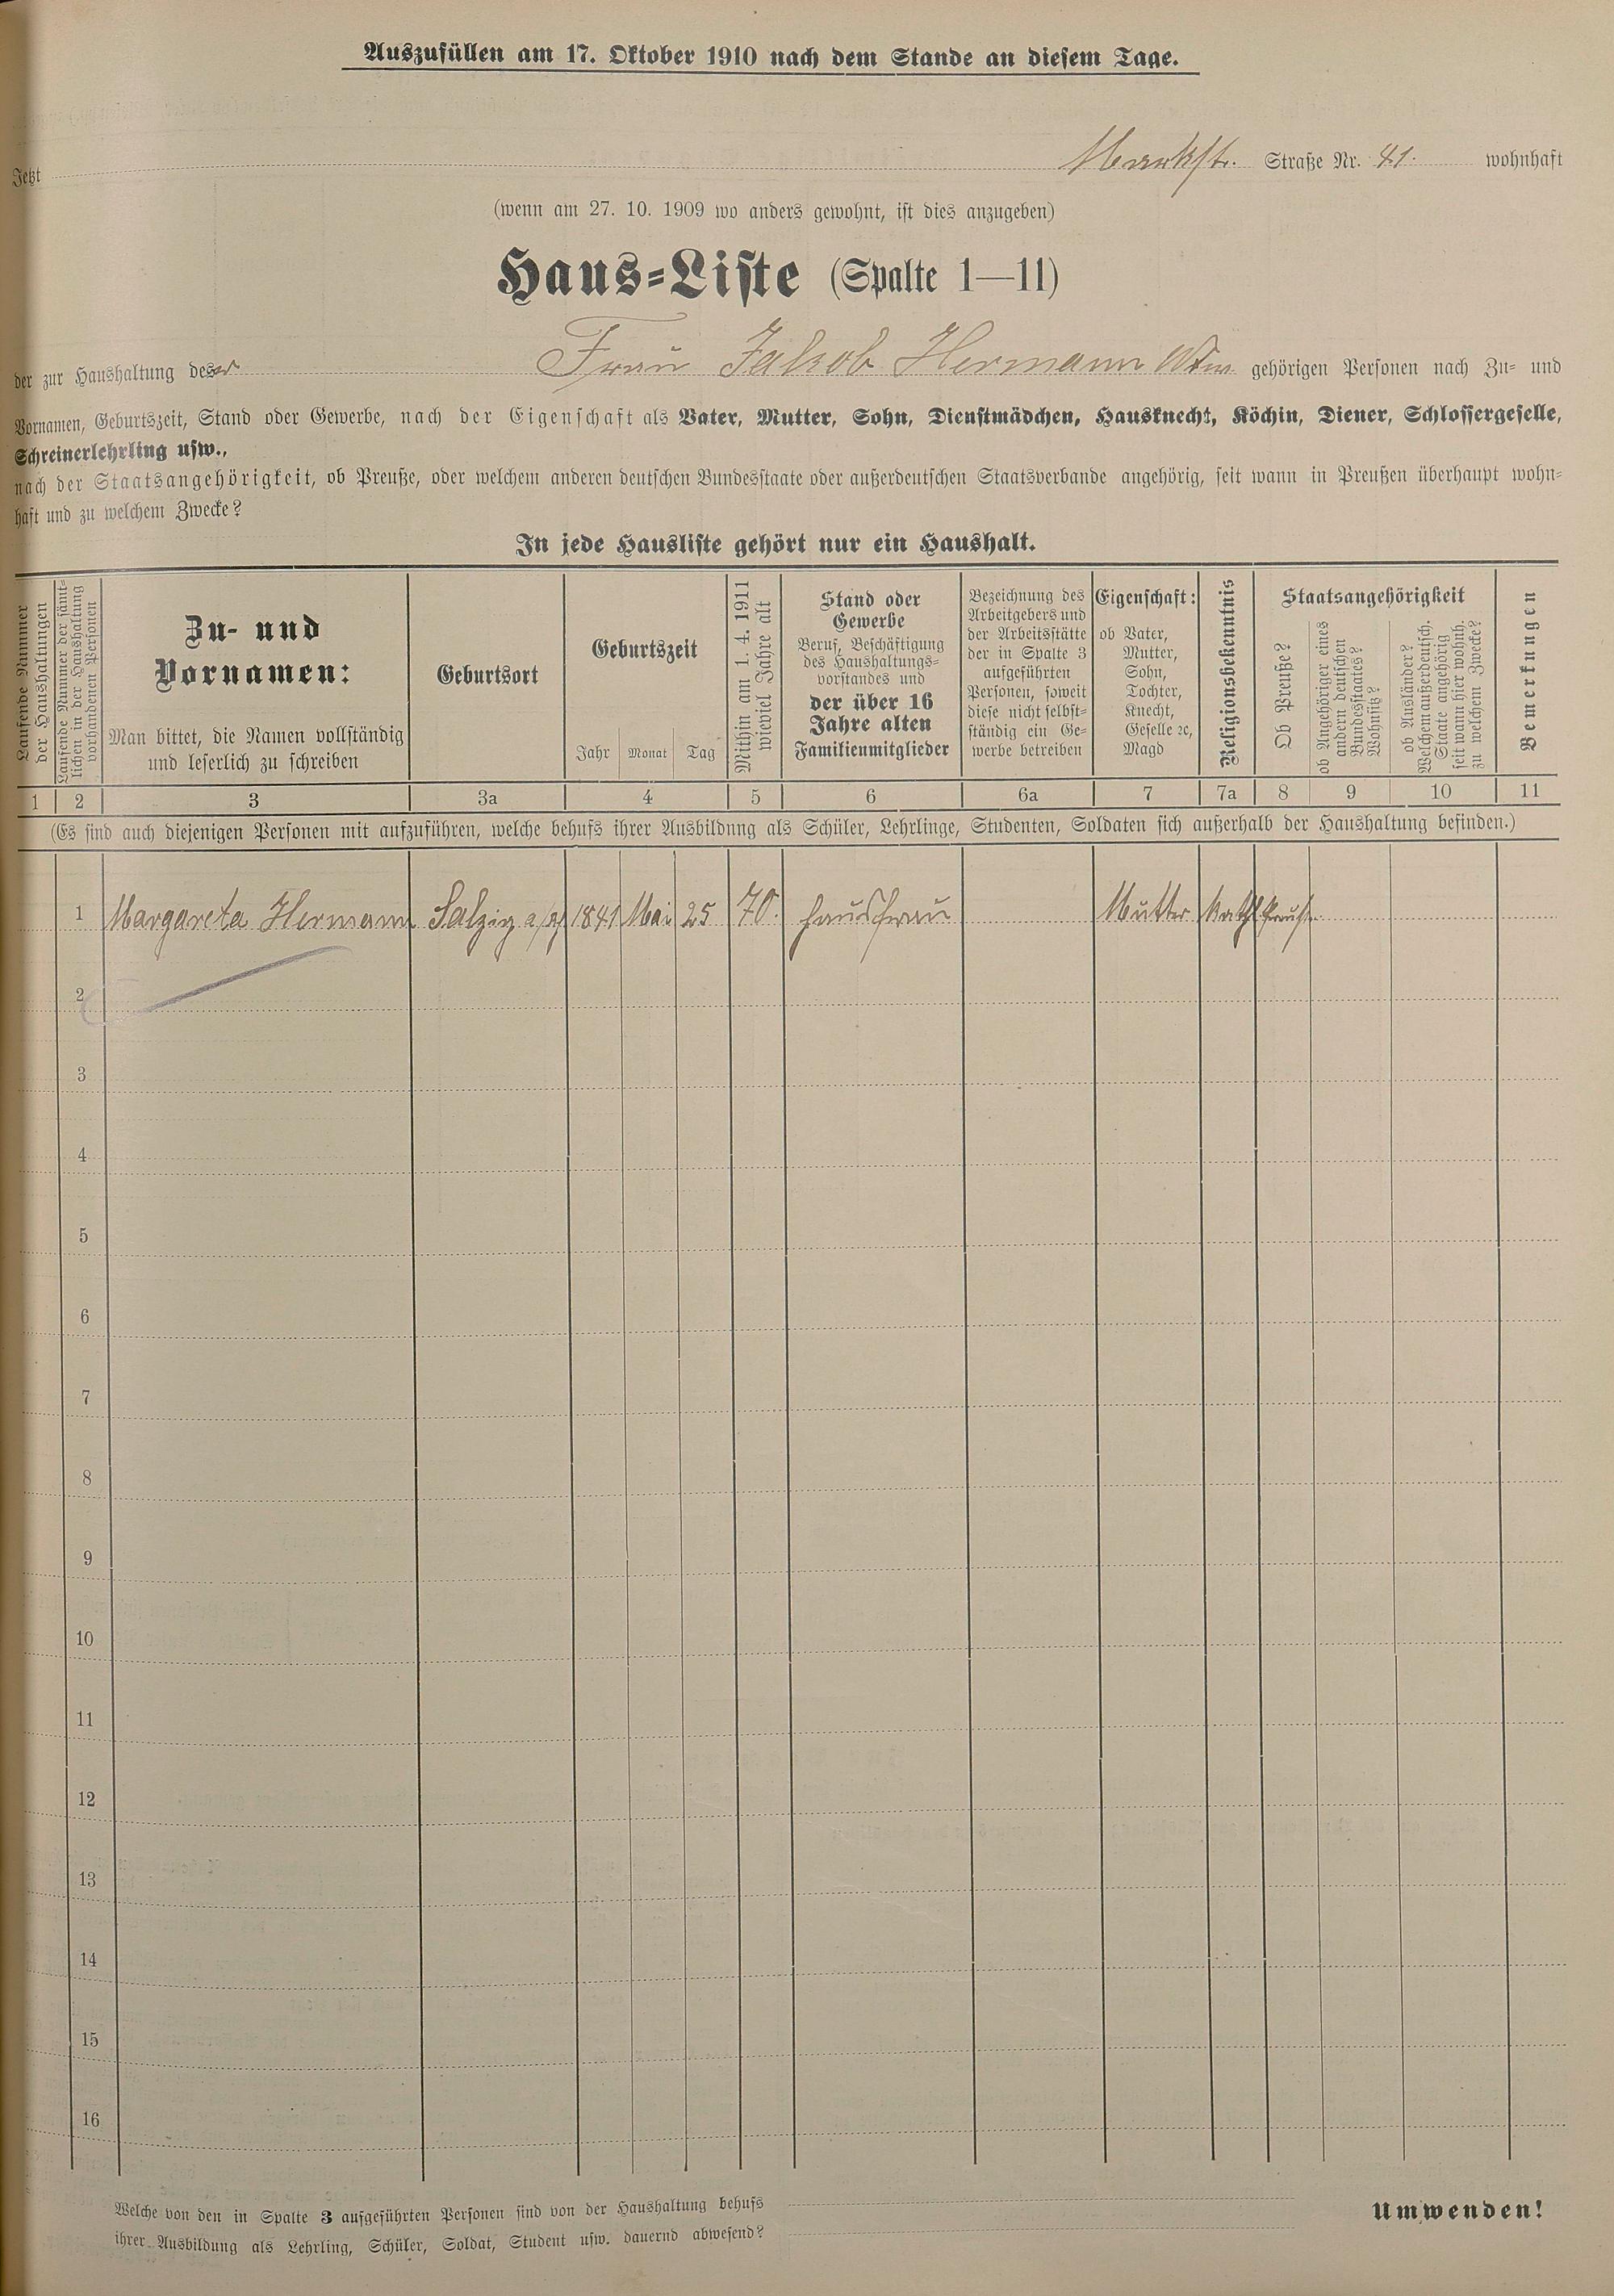 Auszufüllen am 17. Oktober 1910 nach dem Stande an diesem Tage.
Jetzt Markstr. Straße Nr. 41. wohnhaft
(wenn am 27. 10. 1909 wo anders gewohnt, ist dies anzugeben)
Haus-Liste (Spalte 1—11)
der zur Haushaltung des er Frau Jakob Hermann Wtw. gehörigen Personen nach Zu- und
Vornamen, Geburtszeit, Stand oder Gewerbe, nach der Eigenschaft als Vater, Mutter, Sohn, Dienstmädchen, Hausknecht, Köchin, Diener, Schlossergeselle,
Schreinerlehrling usw.,
nach der Staatsangehörigkeit, ob Preuße, oder welchem anderen deutschen Bundesstaate oder außerdeutschen Staatsverbande angehörig, seit wann in Preußen überhaupt wohn-
haft und zu welchem Zwecke?
In jede Hausliste gehört nur ein Haushalt.
Laufende Nummer
der Haushaltungen
Laufende Nummer der sämt-
lichen in der Haushaltung
vorhandenen Personen
Zu- und
Vornamen:
Man bittet, die Namen vollständig
und leserlich zu schreiben
Geburtsort
Geburtszeit
Jahr Monat Tag
Mithin am 1. 4. 1911
wieviel Jahre alt
Stand oder
Gewerbe
Beruf, Beschäftigung
des Haushaltungs-
vorstandes und
der über 16
Jahre alten
Familienmitglieder
Bezeichnung des
Arbeitgebers und
der Arbeitsstätte
der in Spalte 3
aufgeführten
Personen, soweit
diese nicht selbst-
ständig ein Ge-
werbe betreiben
Eigenschaft:
ob Vater,
Mutter,
Sohn,
Tochter,
Knecht,
Geselle ec,
Magd
Religionsbekenntnis
Staatsangehörigkeit
Ob Preuße?
ob Angehöriger eines
andern deutschen
Bundesstaates?
Wohnsitz?
ob Ausländer?
Welchem außerdeutsch.
Staate angehörig
seit wann hier wohnh.
zu welchem Zwecke?
Bemerkungen
1 2 3 3a 4 5 6 6a 7 7a 8 9 10 11
(Es sind auch diejenigen Personen mit aufzuführen, welche behufs ihrer Ausbildung als Schüler, Lehrlinge, Studenten, Soldaten sich außerhalb der Haushaltung befinden.)
1 Margareta Hermann Salzig a/Rh 1841 Mai 25 70. Hausfrau Mutter Kath Preuße
2
3
4
5
6
7
8
9
10
11
12
13
14
15
16
Welche von den in Spalte 3 aufgeführten Personen sind von der Haushaltung behufs
ihrer Ausbildung als Lehrling, Schüler, Soldat, Student usw. dauernd abwesend?
Umwenden!